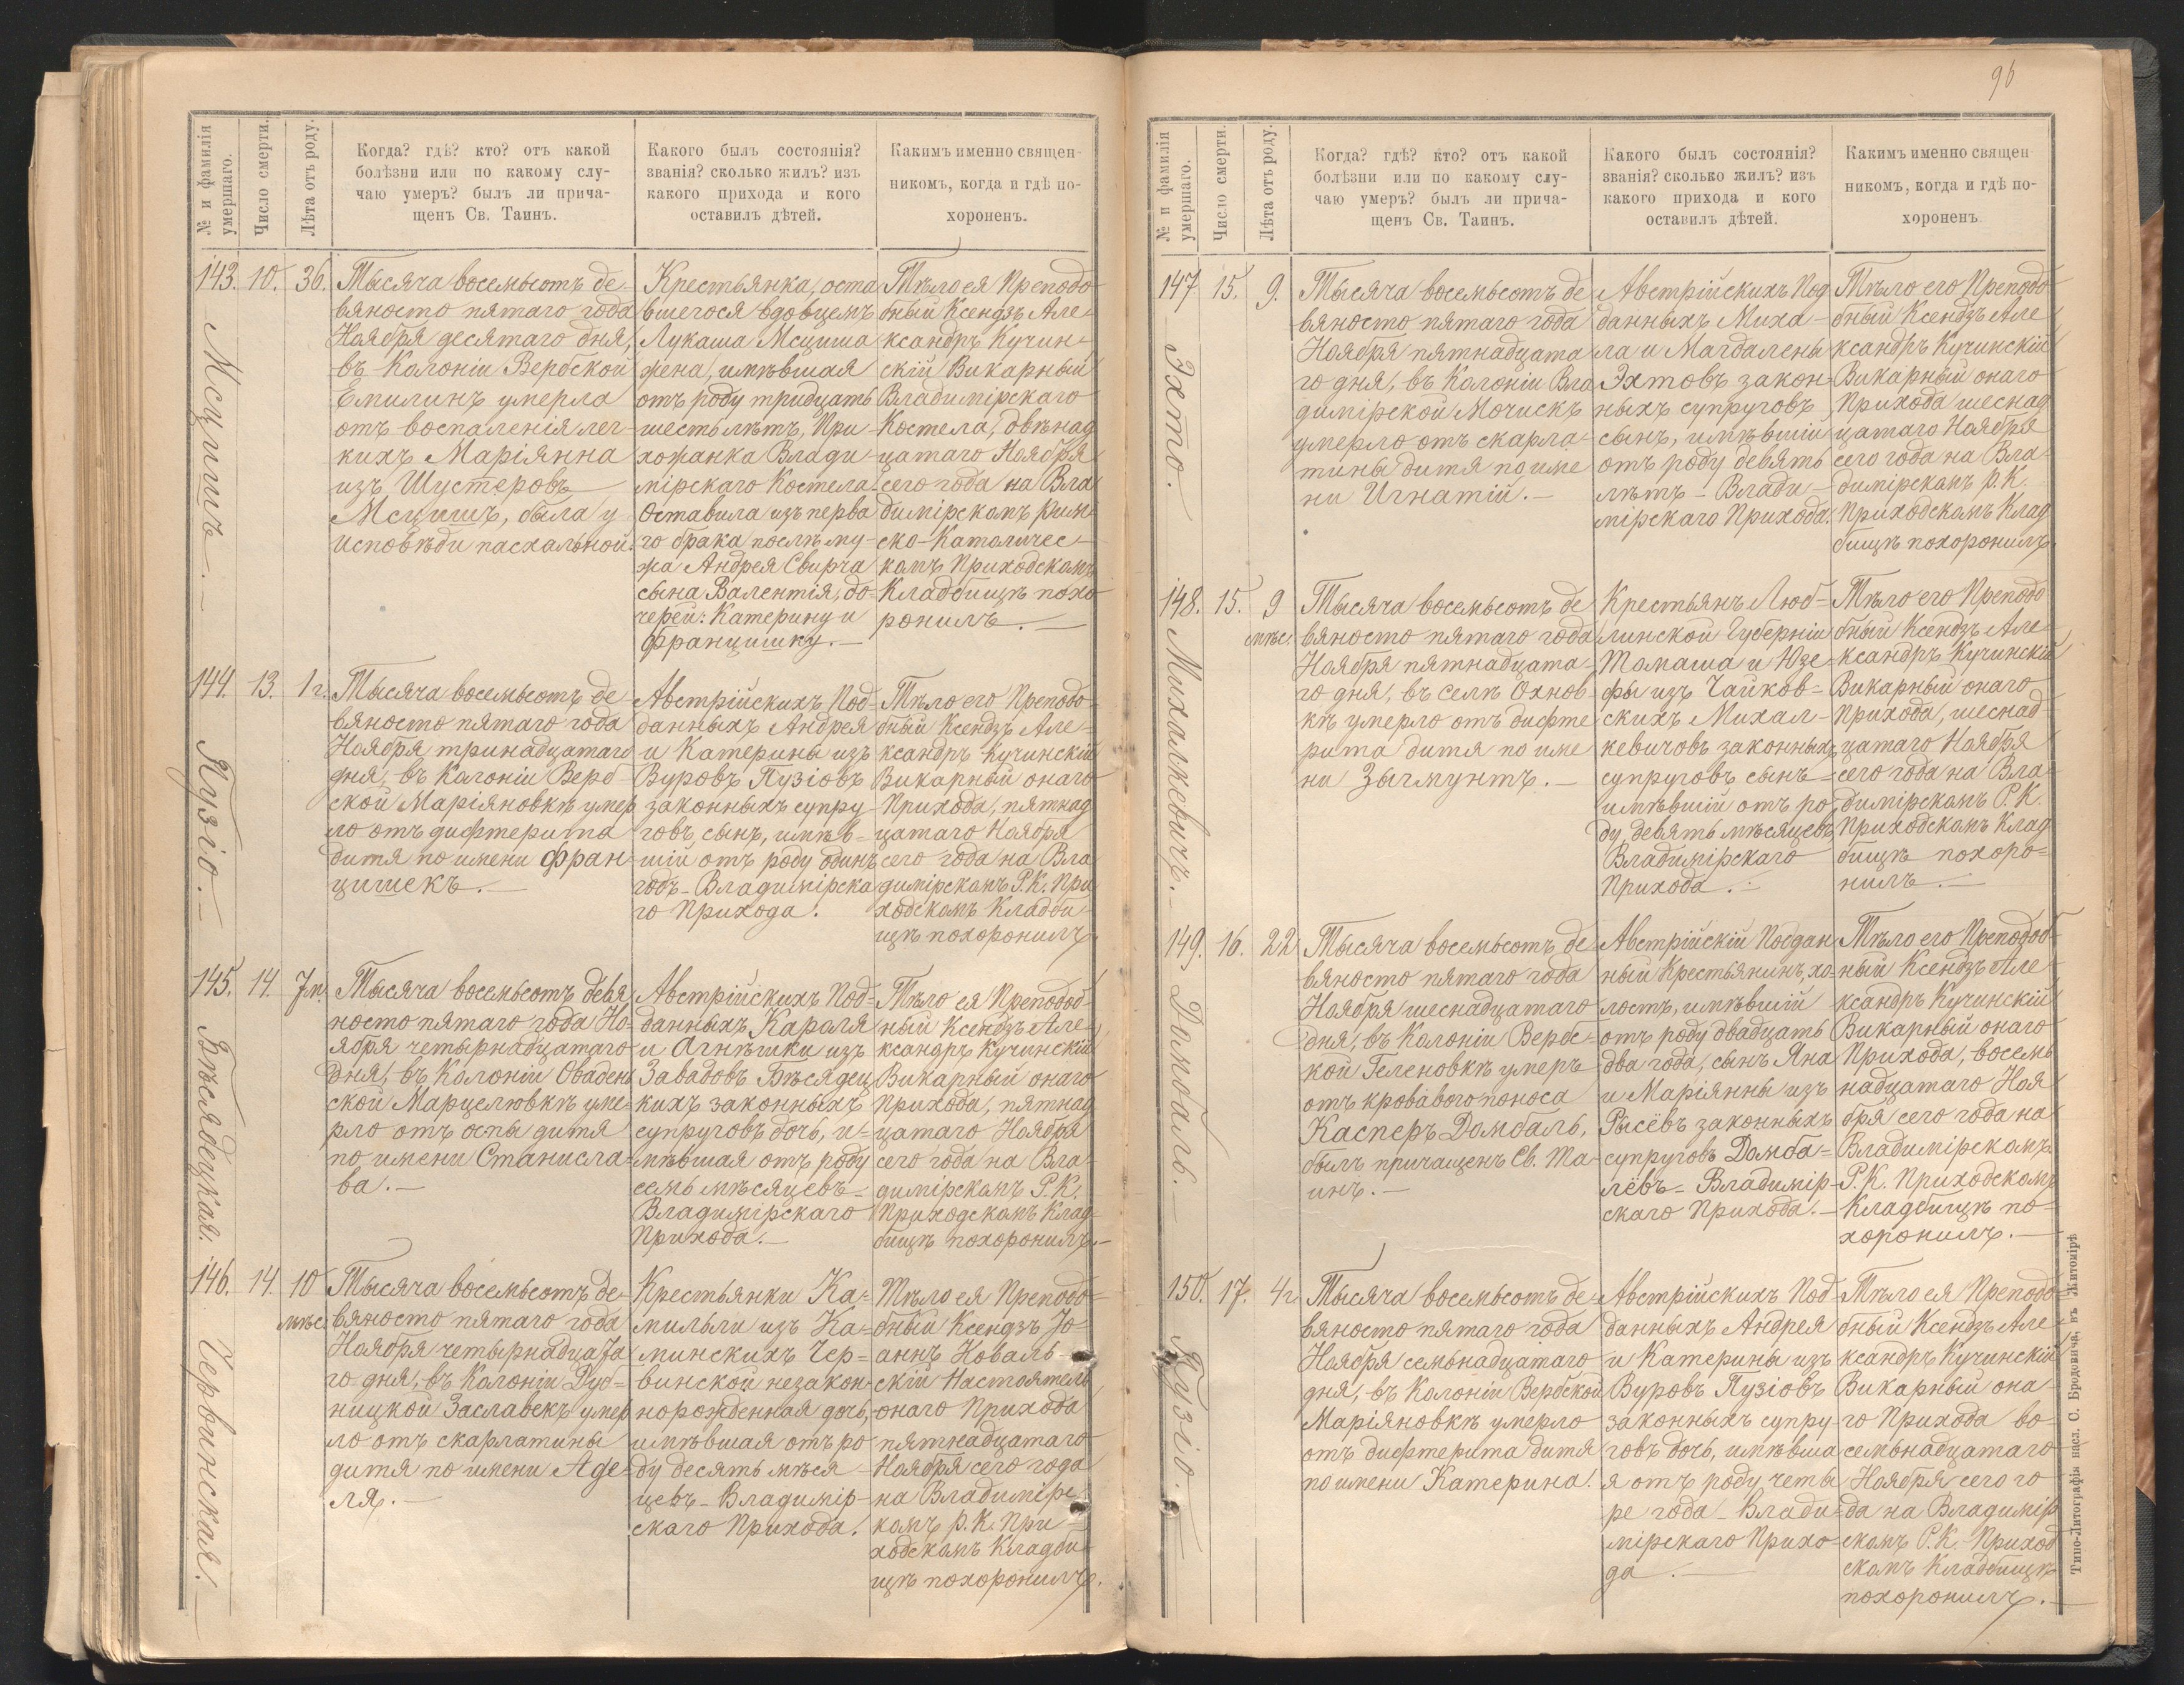 96
№ и фамилія умершаго.
Число смерти.
Лѣта отъ роду.
Когда? гдѣ? кто? отъ какой
болѣзни или по какому слу-
чаю умеръ? былъ ли прича-
щенъ Св. Таинъ.
Какого былъ состоянія?
званія? сколько жилъ? изъ
какого прихода и кого
оставилъ дѣтей.
Какимъ именно священ-
никомъ, когда и гдѣ по-
хороненъ.
143. 10. 36.
Мсцишъ.—
Тысяча восемьсотъ де-
вяносто пятаго года
Ноября десятаго дня,
въ Колоніи Вербской
Емилинъ умерла
отъ воспаленія лег-
кихъ Маріянна
изъ Шустеровъ
Мсцишъ, была у
исповѣди пасхальной.
Крестьянка, оста
вшегося вдовцемъ
Лукаша Мсциша
жена, имѣвшая
отъ роду тридцать
шесть лѣтъ, При
хожанка Влади-
мірскаго Костела.
Оставила изъ перва
го брака послѣ му-
жа Андрея Свирча
сына Валентія, до-
черей: Катерину и
Францишку.—
Тѣло ея Преподо
бный Ксендзъ Але-
ксандръ Кучин-
скій Викарный
Владимірскаго
Костела, двѣнад
цатаго Ноября
сего года на Вла
димірскомъ Рим
ско-Католичес-
комъ Приходскомъ
Кладбищѣ похо
ронилъ.—
144. 13. 1 г.
Пузіо.—
Тысяча восемьсотъ де-
вяносто пятаго года
Ноября тринадцатаго
дня, въ Колоніи Верб-
ской Маріяновкѣ умер
ло отъ дифтерита
дитя по имени Фран-
цишекъ.—
Австрійскихъ Под-
данныхъ Андрея
и Катерины изъ
Вуровъ Пузіовъ
законныхъ супру-
говъ, сынъ, имѣв-
шій отъ роду одинъ
годъ - Владимірска
го Прихода.
Тѣло его Преподо
бный Ксендзъ Але-
ксандръ Кучинскій
Викарный онаго
Прихода, пятнад
цатаго Ноября
сего года на Вла
димірскомъ Р. К. При
ходскомъ Кладби-
щѣ похоронилъ.
145. 14. 7 м.
Бѣсядецкая.
Тысяча восемьсотъ девя
носто пятаго года Но-
ября четырнадцатаго
дня, въ Колоніи Овадень
ской Марцелювкѣ уме-
рло отъ оспы дитя
по имени Станисла-
ва.—
Австрійскихъ Под-
данныхъ Кароля
и Агнѣшки изъ
Завадовъ Бѣсядец
кихъ законныхъ
супруговъ дочь, и-
мѣвшая отъ роду
семь мѣсяцевъ
Владимірскаго
Прихода.—
Тѣло ея Преподоб
ный Ксендзъ Але-
ксандръ Кучинскій
Викарный онаго
Прихода, пятнад
цатаго Ноября
сего года на Вла-
димірскомъ Р. К.
Приходскомъ Клад-
бищѣ похоронилъ.—
146. 14. 10 мѣс.
Червинская.—
Тысяча восемьсотъ де-
вяносто пятаго года
Ноября четырнадцата
го дня, въ Колоніи Руд-
ницкой Заславекъ умер
ло отъ скарлатины
дитя по имени Аде-
ля.—
Крестьянки Ка-
мильли изъ Ка-
минскихъ Чер-
винской незакон-
норожденная дочь,
имѣвшая отъ ро
ду десять мѣся-
цевъ - Владимір-
скаго Прихода.
Тѣло ея Преподо-
бный Ксендзъ Іо-
аннъ Коваль-
скій Настоятель
онаго Прихода
пятнадцатаго
Ноября сего года
на Владимірс
комъ Р. К. При
ходскомъ Кладби
щѣ похоронилъ.
№ и фамилія умершаго.
Число смерти.
Лѣта отъ роду.
Когда? гдѣ? кто? отъ какой
болѣзни или по какому слу-
чаю умеръ? былъ ли прича-
щенъ Св. Таинъ.
Какого былъ состоянія?
званія? сколько жилъ? изъ
какого прихода и кого
оставилъ дѣтей.
Какимъ именно священ-
никомъ, когда и гдѣ по-
хороненъ.
147 15. 9.
Эхто.
Тысяча восемьсотъ де
вяносто пятаго года
Ноября пятнадцата
го дня, въ Колоніи Вла
димірской Мочискъ
умерло отъ скарла-
тины дитя по име
ни Игнатій.—
Австрійскихъ Под
данныхъ Миха-
ла и Магдалены
Эхтовъ закон-
ныхъ супруговъ
сынъ, имѣвшій
отъ роду девять
лѣтъ - Влади-
мірскаго Прихода.
Тѣло его Преподо
бный Ксендзъ Але
ксандръ Кучинскій
Викарный онаго
Прихода шеснад
цатаго Ноября
сего года на Вла-
димірскомъ Р. К.
Приходскомъ Клад
бищѣ похоронилъ.
148. 15. 9 мѣс.
Михалкевичъ.—
Тысяча восемьсотъ де
вяносто пятаго года
Ноября пятнадцата-
го дня, въ селѣ Охнов-
кѣ умерло отъ дифте
рита дитя по име
ни Зыгмунтъ.—
Крестьянъ Люб-
линской Губерніи
Томаша и Юзе-
фы изъ Чайков-
скихъ Михал-
кевичовъ законныхъ
супруговъ сынъ
имѣвшій отъ ро
ду девять мѣсяцевъ
Владимірскаго
Прихода.—
Тѣло его Преподо
бный Ксендзъ Але
ксандръ Кучинскій
Викарный онаго
Прихода, шеснад
цатаго Ноября
сего года на Вла-
димірскомъ Р. К.
Приходскомъ Клад
бищѣ похоро-
нилъ.—
149. 16. 22
Домбаль.—
Тысяча восемьсотъ де
вяносто пятаго года
Ноября шеснадцатаго
дня, въ Колоніи Вербс-
кой Геленовкѣ умеръ
отъ кроваваго поноса
Касперъ Домбаль,
былъ причащенъ Св. Та-
инъ.—
Австрійскій Поддан
ный Крестьянинъ, хо
лостъ, имѣвшій
отъ роду двадцать
два года, сынъ Яна
и Маріянны изъ
Рысёвъ законныхъ
супруговъ Домба-
лёвъ - Владимір-
скаго Прихода.—
Тѣло его Преподоб
ный Ксендзъ Але-
ксандръ Кучинскій
Викарный онаго
Прихода, восемь
надцатаго Ноя
бря сего года на
Владимірскомъ
Р. К. Приходскомъ
Кладбищѣ по-
хоронилъ.—
150. 17. 4 г.
Пузіо.—
Тысяча восемьсотъ де-
вяносто пятаго года
Ноября семьнадцатаго
дня, въ Колоніи Вербской
Маріяновкѣ умерло
отъ дифтерита дитя
по имени Катерина.
Австрійскихъ Под
данныхъ Андрея
и Катерины изъ
Вуровъ Пузіовъ
законныхъ супру-
говъ дочь, имѣвша
я отъ роду четы
ре года - Влади-
мірскаго Прихо-
да.—
Тѣло ея Преподо
бный Ксендзъ Але
ксандръ Кучинскій
Викарный она
го Прихода во-
семьнадцатаго
Ноября сего го
да на Владимір
скомъ Р. К. Приход
скомъ Кладбищѣ
похоронилъ.—
Типо-Литографія насл. С. Бродовича, въ Житомірѣ